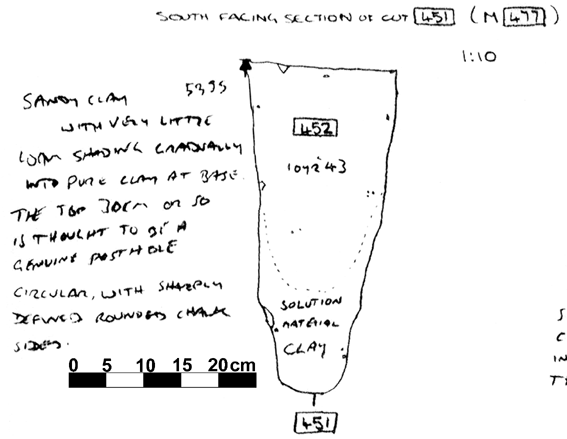 SOUTH FACING SECTION OF CUT 451 (M 477)
1:10
5395
SANDY CLAY
WITH VERY LITTLE
LOAM SHADING GRADUALLY
INTO PURE CLAY AT BASE.
THE TOP 30CM OR SO
IS THOUGHT TO BE A
GENUINE POSTHOLE
CIRCULAR, WITH SHARPLY
DEFINED ROUNDED CHALK
SIDES.
452
10YR 43
SOLUTION
MATERIAL
CLAY
0 5 10 15 20cm
451
S
C
IN
T